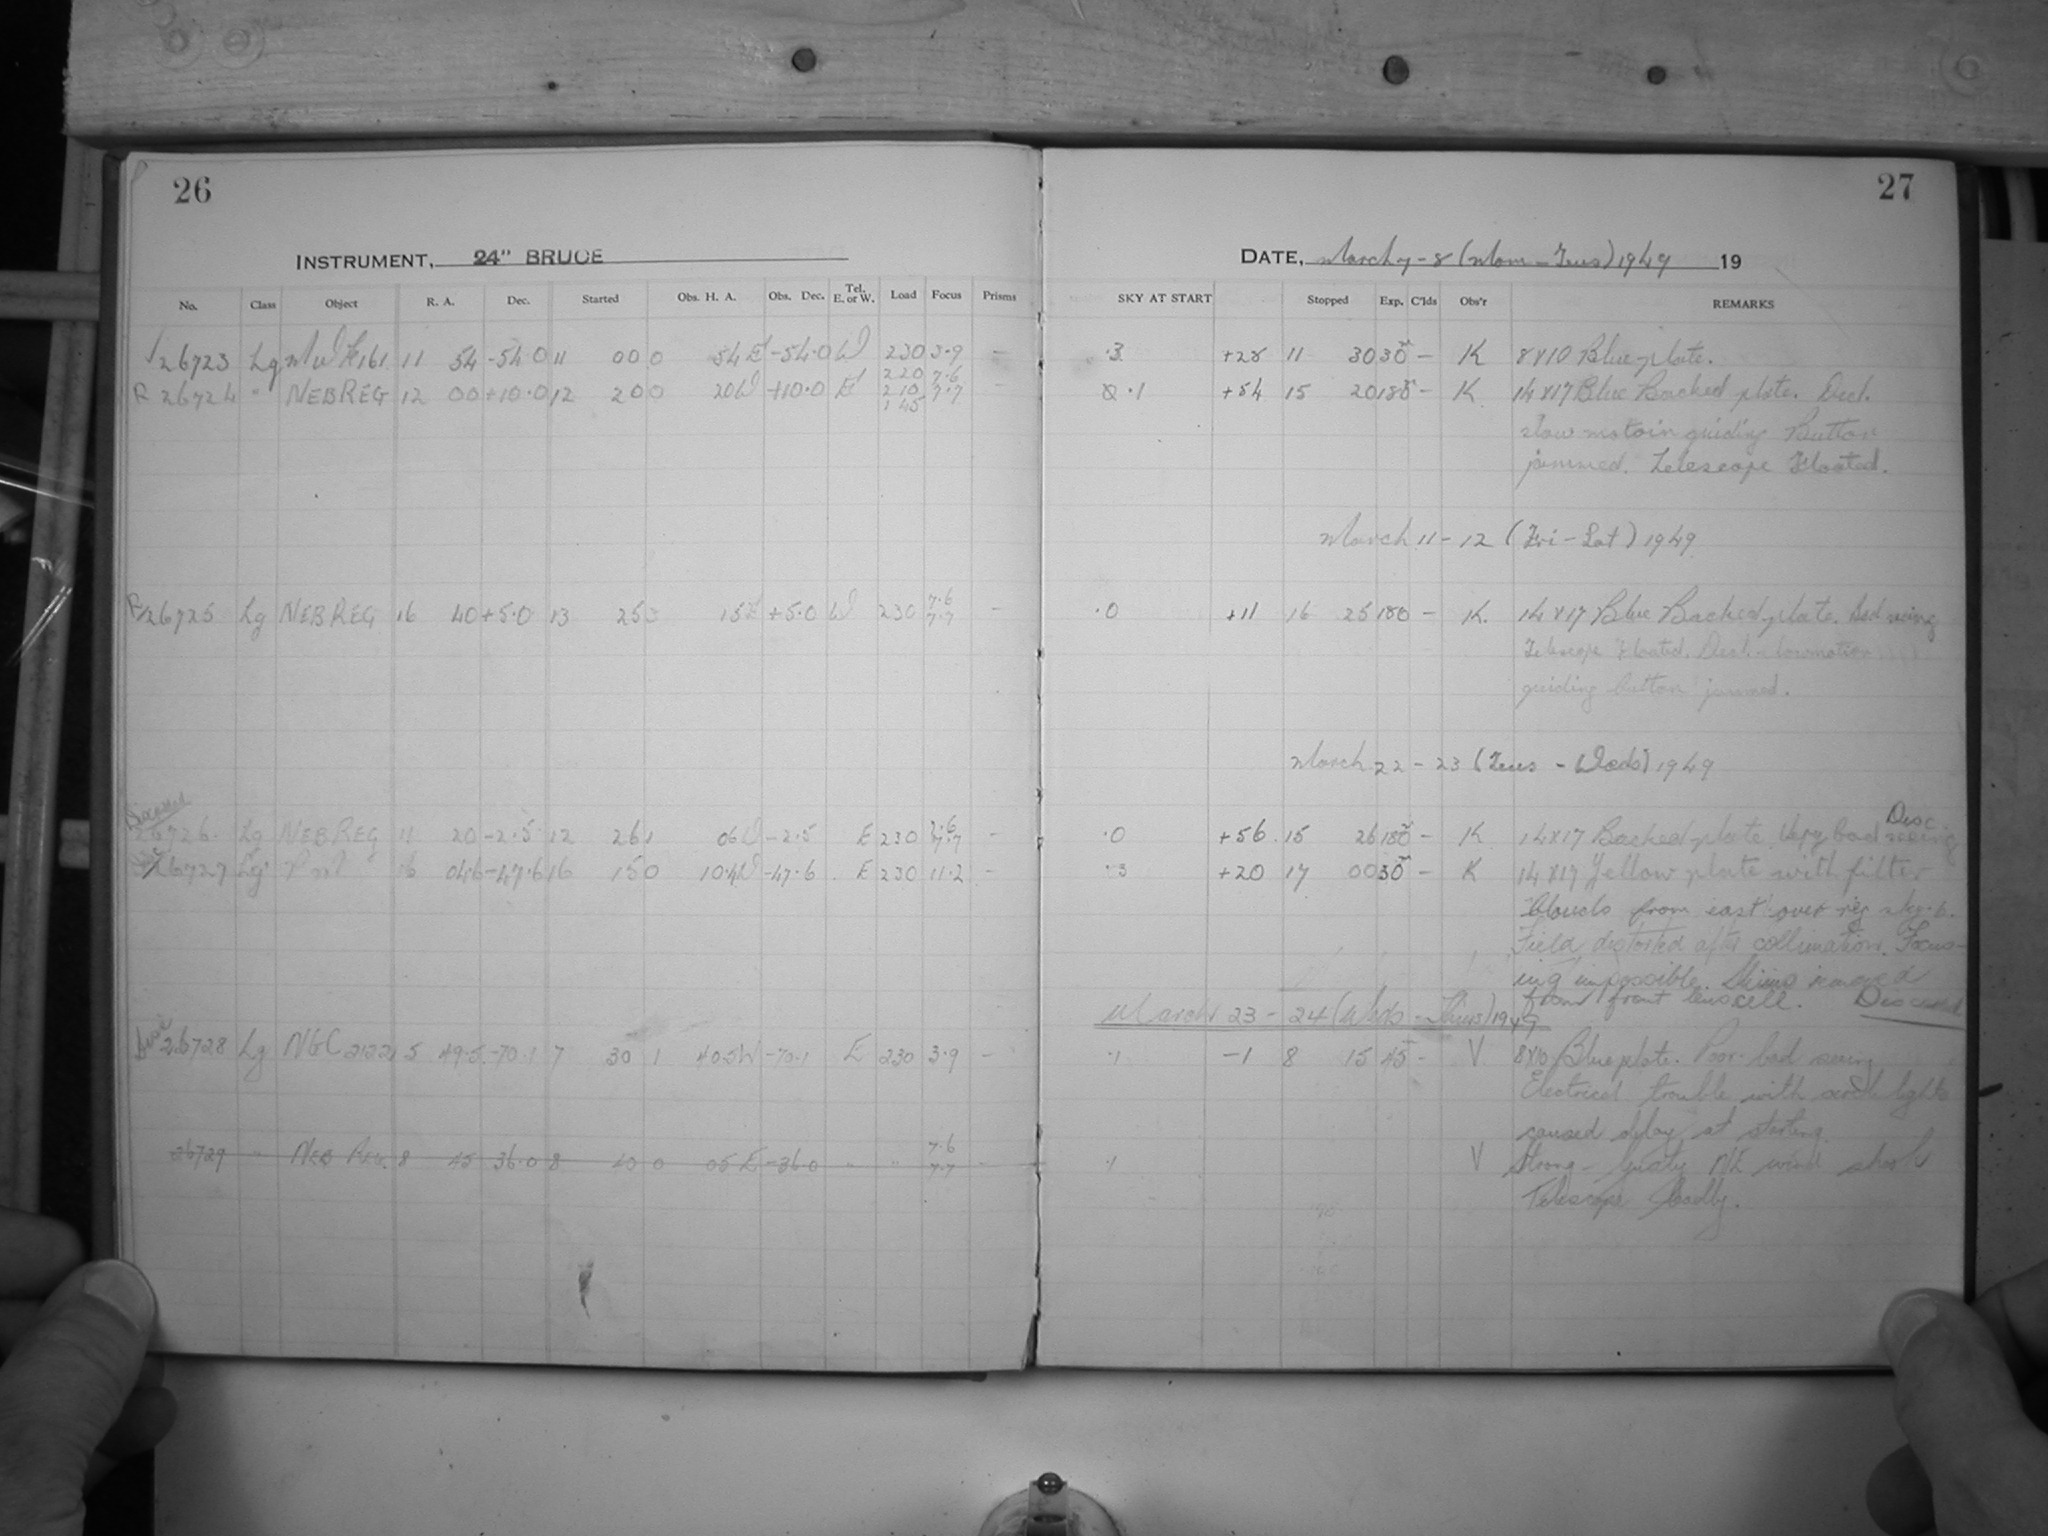 26
27
INSTRUMENT, 24" BRUCE
DATE, March 7-8 (Mon-Tues) 1949 19
No. Class Object R. A. Dec. Started Obs. H. A. Obs. Dec. Tel. E. or W. Load Focus Prisms SKY AT START Stopped Exp. C'lds Obs'r REMARKS
26723 Lg MWF161 11 54 -54.0 11 00 0 54E -54.0 W 230 3.9 - .3 +28 11 30 30 - K 8X10 Blue plate.
R 26724 " NEBREG 12 00 +10.0 12 20 0 20W +10.0 E 220 210 145 7.6 7.7 - .1 +54 15 20 180 - K 14X17 Blue Backed plate. Decl.
slow motoin guiding Button
jammed. Telescope Floated.
March 11-12 (Fri-Sat) 1949
R 26725 Lg NEBREG 16 40 +5.0 13 25 15E +5.0 W 230 7.6 7.7 - .0 +11 16 25 180 - K. 14X17 Blue Backed plate. Bad seeing
Telescope Floated. Decl. slowmotion
guiding button jammed.
March 22-23 (Tues - Weds) 1949
Discarded Disc.
26726. Lg NEBREG 11 20 -2.5 12 26 1 06W -2.5 E 230 7.6 7.7 - .0 +56 15 26 180 - K 14X17 Backed plate. Very bad seeing
26727 Lg 16 04.6 -47.6 16 15 0 10.4W -47.6 E 230 11.2 - .3 +20 17 00 30 - K 14X17 Yellow plate with filter
Clouds from east over reg sky.6.
Field distorted after collimation. Focus-
ing impossible. Skims removed
from front lens cell. Discarded
March 23-24 (Weds-Thurs) 1949
Disc 26728 Lg NGC 2122 5 49.5 -70.1 7 30 1 40.5W -70.1 E 230 3.9 - .1 -1 8 15 45 - V 8X10 Blue plate. Poor-bad seeing
Electrical trouble with circle lights
caused delay at starting.
26729 " NEB REG. 8 45 36.0 8 40 0 05E -36.0 " " 7.6 7.7 - .1 V Strong-Gusty N/E wind shook
Telescope badly.